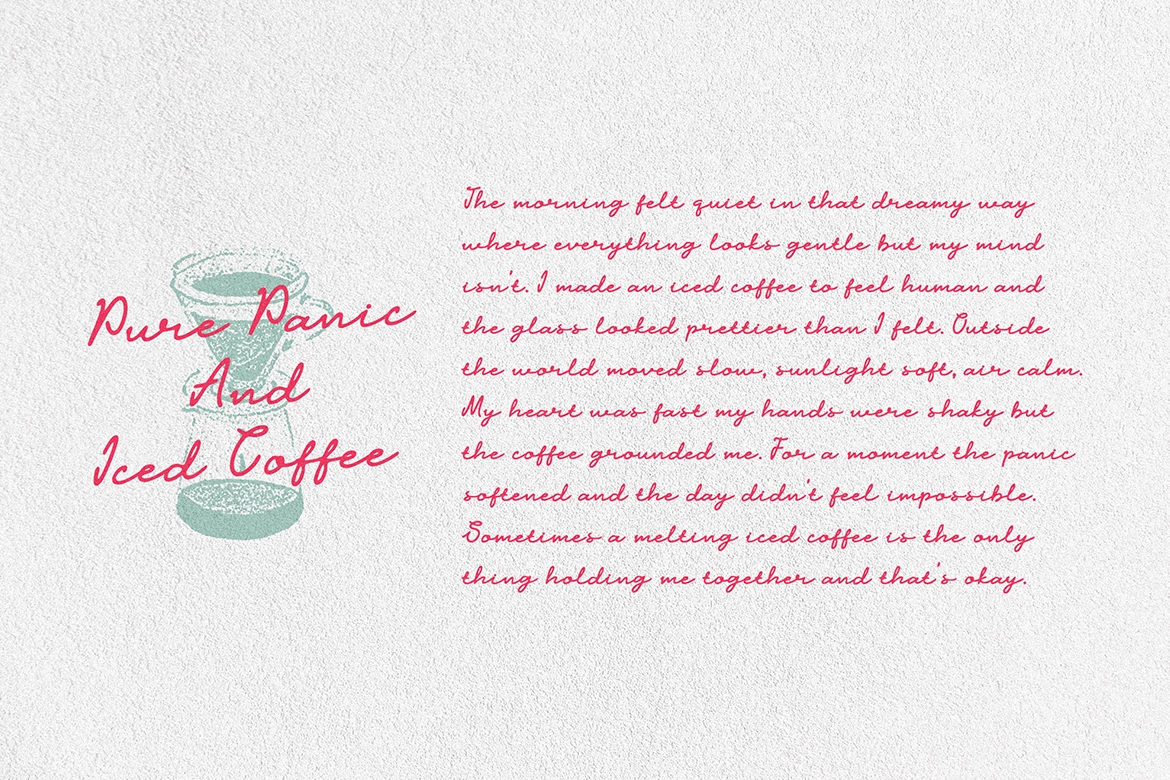 Pure Panic
And
Iced Coffee
The morning felt quiet in that dreamy way
where everything looks gentle but my mind
isn't. I made an iced coffee to feel human and
the glass looked prettier than I felt. Outside
the world moved slow, sunlight soft, air calm.
My heart was fast my hands were shaky but
the coffee grounded me. For a moment the panic
softened and the day didn't feel impossible.
Sometimes a melting iced coffee is the only
thing holding me together and that's okay.